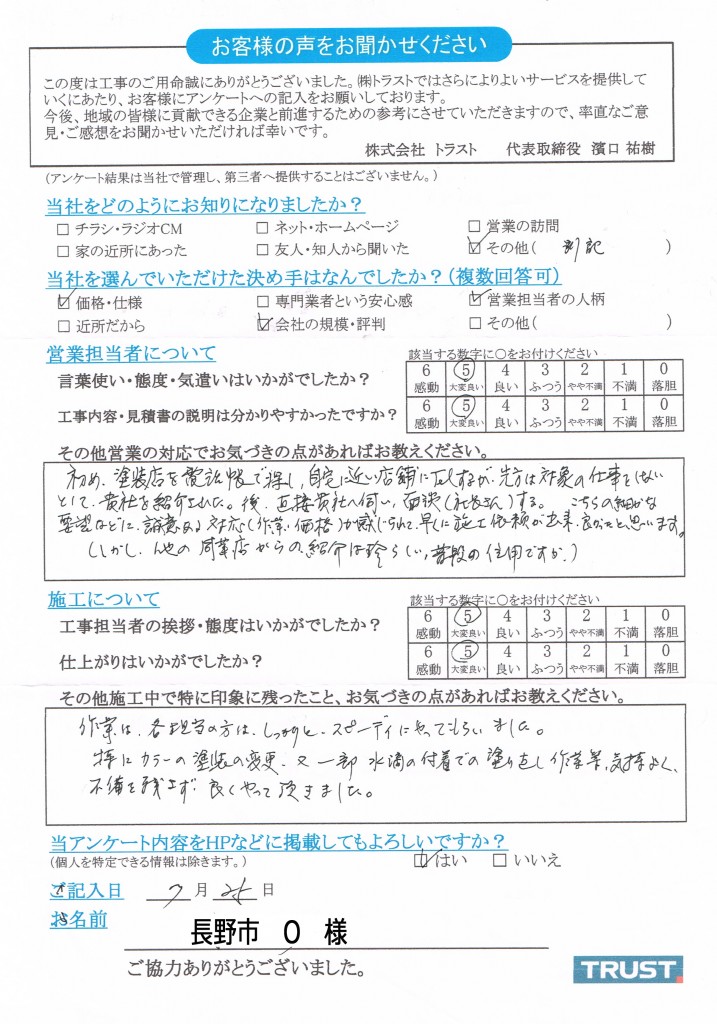 お客様の声をお聞かせください
この度は工事のご用命誠にありがとうございました。㈱トラストではさらによりよいサービスを提供して
いくにあたり、お客様にアンケートへの記入をお願いしております。
今後、地域の皆様に貢献できる企業と前進するための参考にさせていただきますので、率直なご意
見・ご感想をお聞かせいただければ幸いです。
株式会社 トラスト 代表取締役 濱口 祐樹
(アンケート結果は当社で管理し、第三者へ提供することはございません。)
当社をどのようにお知りになりましたか?
□ チラシ・ラジオCM □ ネット・ホームページ □ 営業の訪問
□ 家の近所にあった □ 友人・知人から聞いた ☑ その他( 別記 )
当社を選んでいただけた決め手はなんでしたか?(複数回答可)
☑ 価格・仕様 □ 専門業者という安心感 ☑ 営業担当者の人柄
□ 近所だから ☑ 会社の規模・評判 □ その他( )
営業担当者について
該当する数字に○をお付けください
言葉使い・態度・気遣いはいかがでしたか?
6 5 4 3 2 1 0
感動 大変良い 良い ふつう やや不満 不満 落胆
工事内容・見積書の説明は分かりやすかったですか?
6 5 4 3 2 1 0
感動 大変良い 良い ふつう やや不満 不満 落胆
その他営業の対応でお気づきの点があればお教えください。
初め、塗装店を電話帳で探し、自宅に近い店舗にTELするが、先方は対象の仕事をしない
として、貴社を紹介された。後、直接貴社へ伺い、面談(社長さん)する。 こちらの細かな
要望などに、誠意ある対応(作業・価格)が感じられて、早くに施工依頼が出来、良かったと思います。
(しかし、他の同業店からの紹介は珍らしい、普段の信用ですか。)
施工について
該当する数字に○をお付けください
工事担当者の挨拶・態度はいかがでしたか?
6 5 4 3 2 1 0
感動 大変良い 良い ふつう やや不満 不満 落胆
仕上がりはいかがでしたか?
6 5 4 3 2 1 0
感動 大変良い 良い ふつう やや不満 不満 落胆
その他施工中で特に印象に残ったこと、お気づきの点があればお教えください。
作業は、各担当の方は、しっかりと、スピーディにやってもらいました。
特にカラーの塗装の変更、又一部水滴の付着での塗り直し作業等、気持よく、
不備を残さず良くやって頂きました。
当アンケート内容をHPなどに掲載してもよろしいですか?
(個人を特定できる情報は除きます。)
☑ はい □ いいえ
ご記入日 7 月 日
お名前
長野市 O 様
ご協力ありがとうございました。
TRUST.